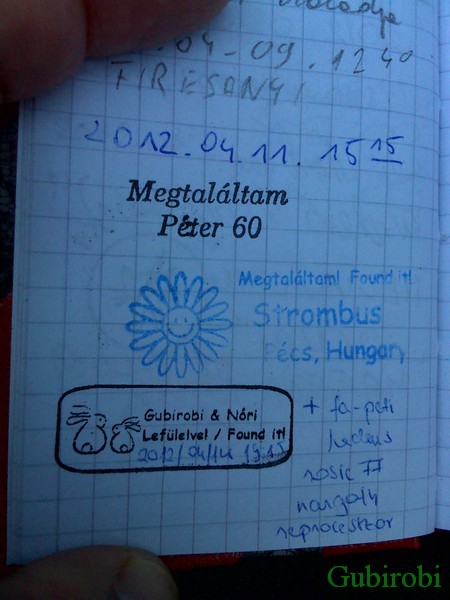 04-09. 12 40
FIRESANYI
2012.04.11. 15 15
Megtaláltam
Péter 60
Megtaláltam! Found it!
Strombus
Pécs, Hungary
Gubirobi & Nóri
Lefülelve! / Found it!
2012/04/14
+ fa-peti
rosie 77
Gubirobi